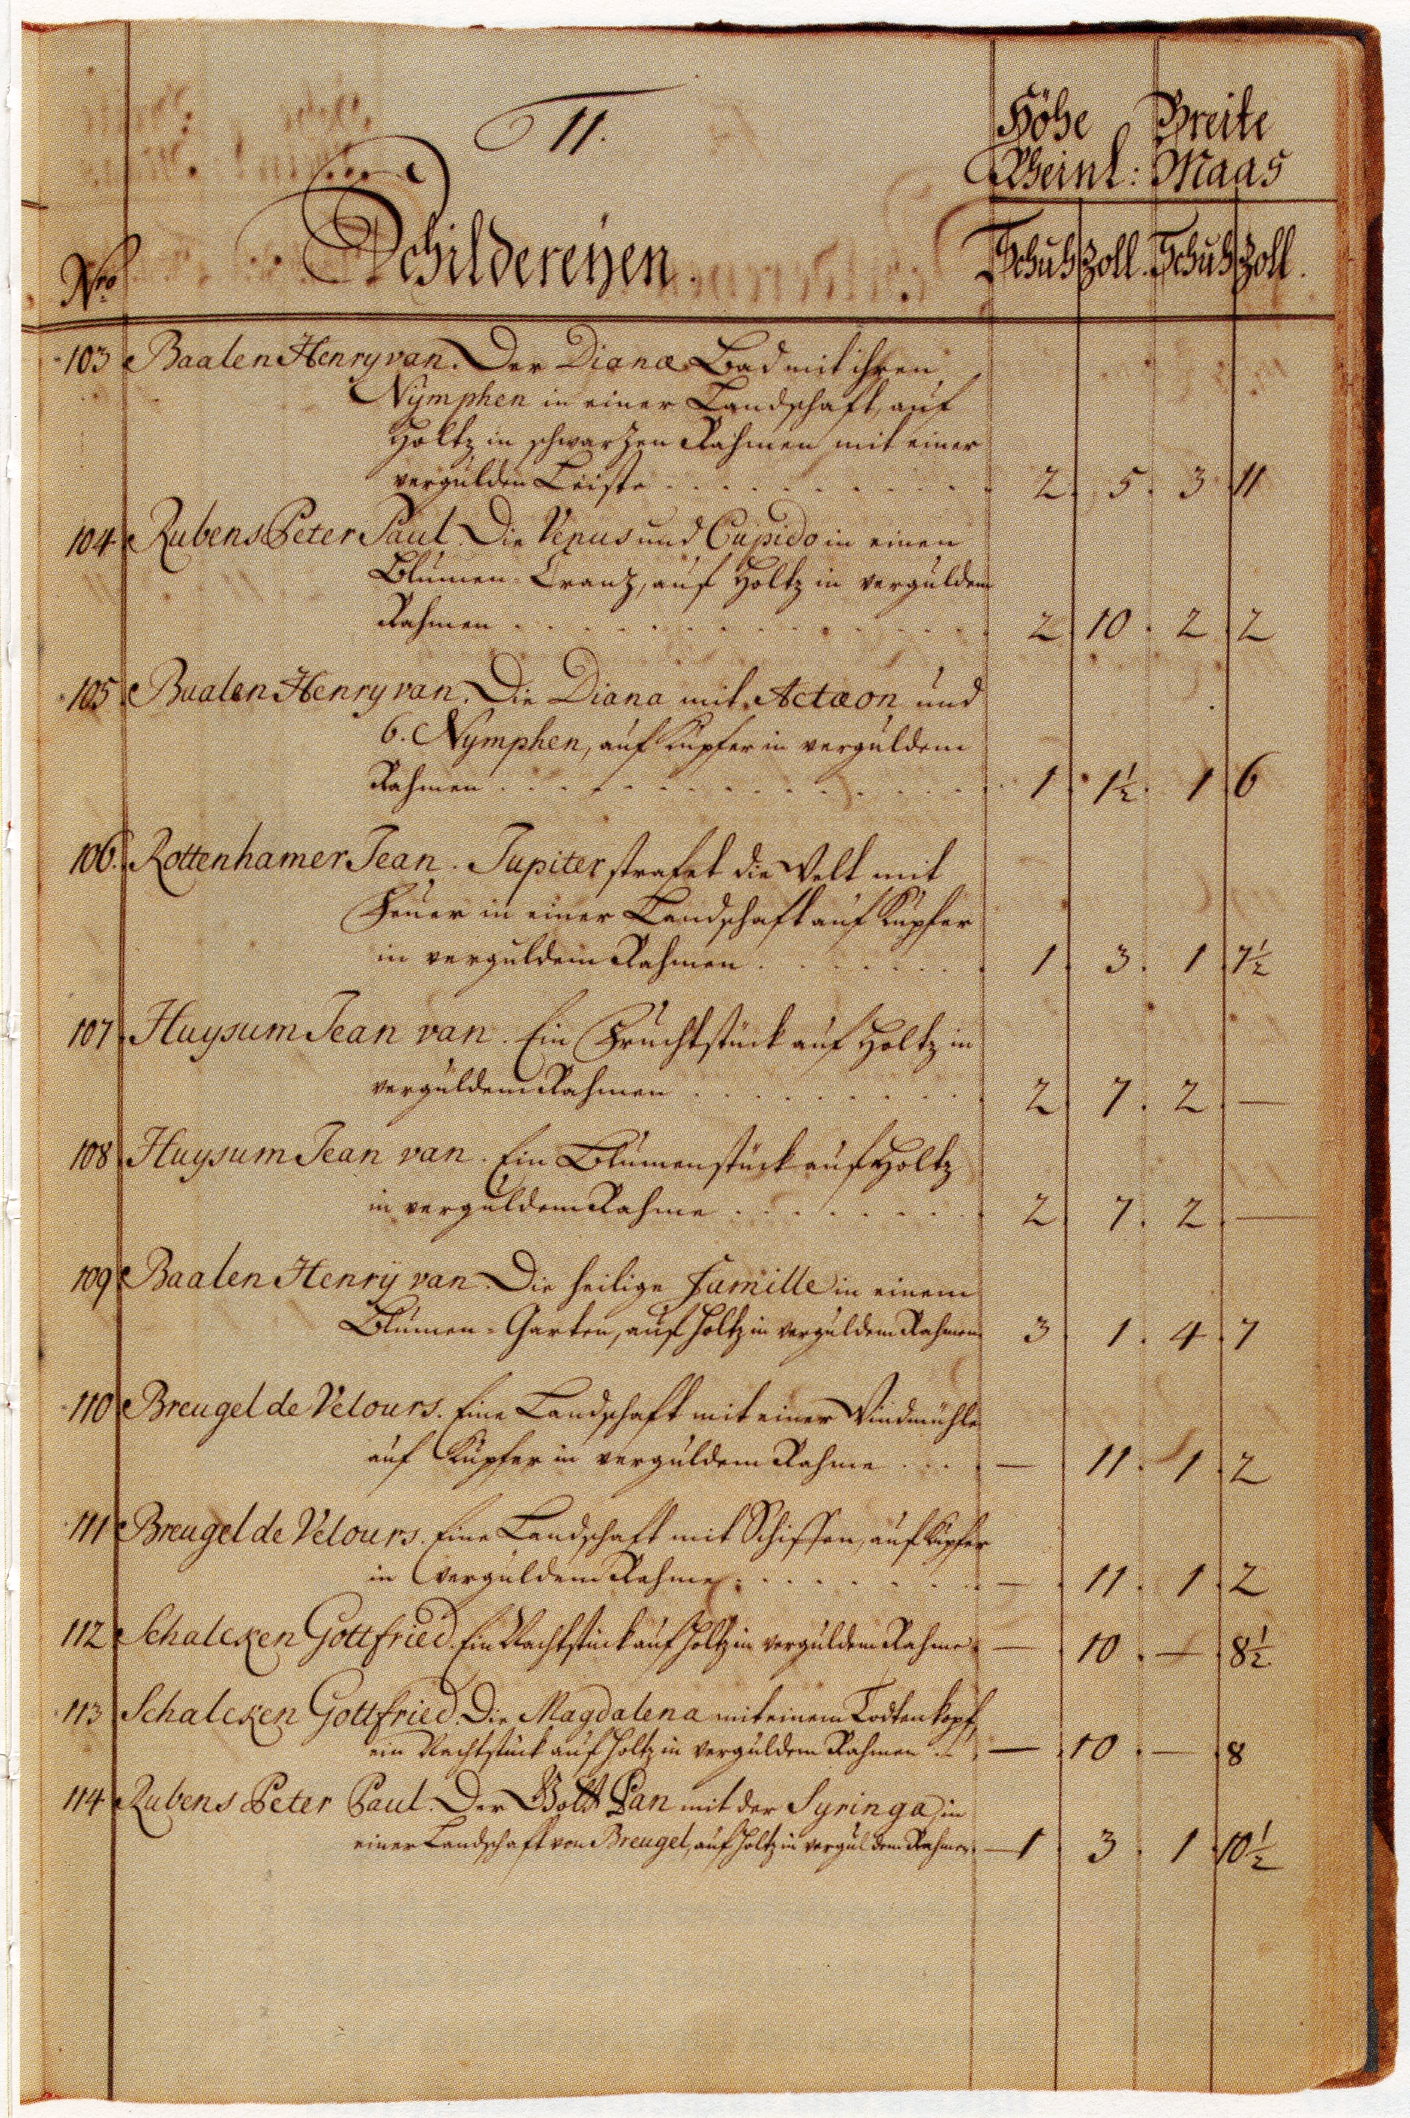 11.
Höhe Breite
Rheinl: Maas
Nro Schildereyen. Schuh Zoll. Schuh Zoll.
103 Baalen Henry van. Der Dianæ Bad mit ihren
Nymphen in einer Landschaft, auf
Holtz in schwartzen Rahmen mit einer
vergulden Leiste . . . 2. 5. 3. 11
104 Rubens Peter Paul. Die Venus und Cupido in einen
Blumen-Crantz, auf Holtz in verguldem
Rahmen . . . 2. 10. 2. 2
105. Baalen Henry van. Die Diana mit Actæon und
6. Nymphen, auf Kupfer in verguldem
Rahmen . . . 1. 1½. 1 6
106. Rottenhamer Jean. Jupiter strafet die Welt mit
Feuer in einer Landschaft auf Kupfer
in verguldem Rahmen . . . 1. 3. 1. 7½
107. Huysum Jean van. Ein Fruchtstück auf Holtz in
verguldem Rahmen . . . 2. 7. 2. —
108. Huysum Jean van. Ein Blumenstück auf Holtz
in verguldem Rahme . . . 2. 7. 2. —
109 Baalen Henry van. Die heilige Famille in einem
Blumen-Garten, auf Holtz in verguldem Rahmen 3. 1. 4. 7
110 Breugel de Velours. Eine Landschaft mit einer Windmühle
auf Kupfer in verguldem Rahme . . . — 11. 1. 2
111 Breugel de Velours. Eine Landschaft mit Schiffen, auf Kupfer
in verguldem Rahme . . . — 11. 1. 2
112 Schalcken Gottfried. Ein Nachtstück auf Holtz in verguldem Rahme. — 10. — 8½
113 Schalcken Gottfried. Die Magdalena mit einem Todtenkopf,
ein Nachtstück auf Holtz in verguldem Rahmen . . — 10. — 8
114 Rubens Peter Paul. Der Gott Pan mit der Syringa in
einer Landschaft von Breugel, auf Holtz in verguldem Rahmen. — 1. 3. 1. 10½